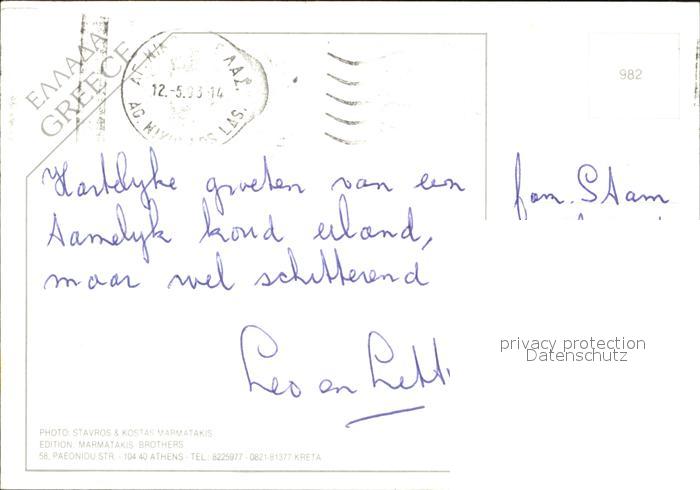 ΕΛΛΑΔΑ
GREECE
12.-5.93-14
AG. LAS.
982
Hartelijke groeten van een
tamelijk koud eiland,
maar wel schitterend
Leo en
fam. Stam
privacy protection
Datenschutz
PHOTO: STAVROS & KOSTAS MARMATAKIS
EDITION: MARMATAKIS BROTHERS
58, PAEONIDU STR. - 104 40 ATHENS - TEL.: 8225977 - 0821-81377 KRETA